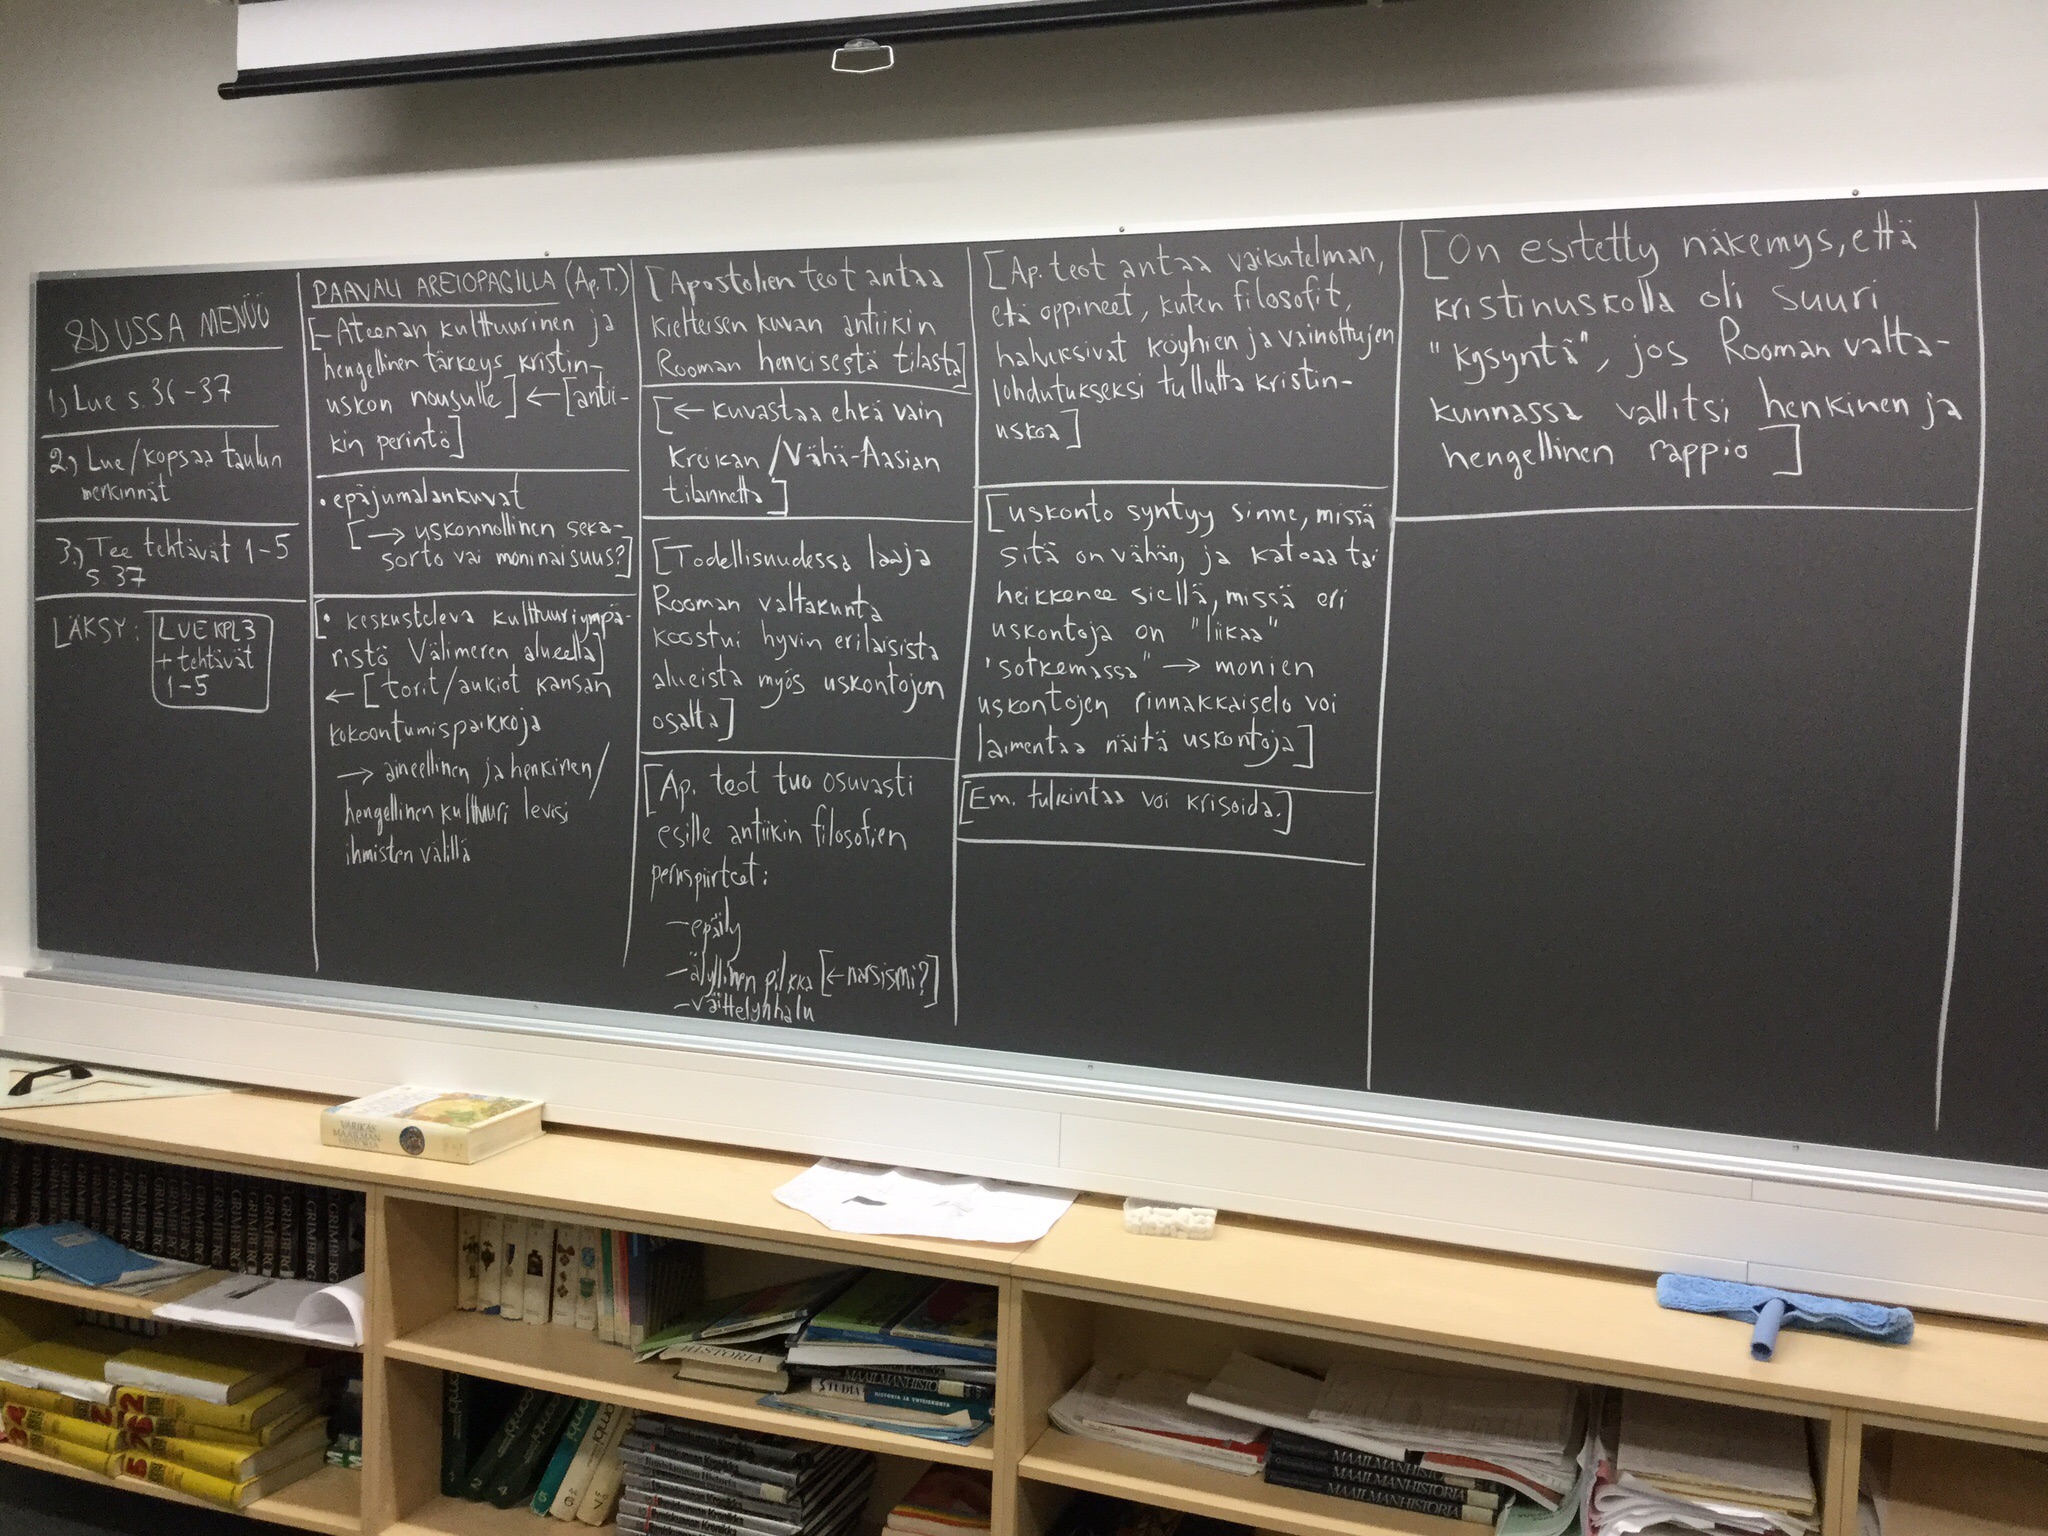 8D USSA MENÜÜ
1) Lue s. 36-37
2) Lue/kopsaa taulun
merkinnät
3) Tee tehtävät 1-5
s. 37
LÄKSY: LUE KPL3
+ tehtävät
1-5
PAAVALI AREIOPAGILLA (Ap.T.)
[-Ateenan kulttuurinen ja
hengellinen tärkeys kristin-
uskon nousulle] ← [antii-
kin perintö]
• epäjumalankuvat
[→ uskonnollinen seka-
sorto vai moninaisuus?]
[• keskusteleva kulttuuriympä-
ristö Välimeren alueella]
← [torit/aukiot kansan
kokoontumispaikkoja
→ aineellinen ja henkinen/
hengellinen kulttuuri levisi
ihmisten välillä
[Apostolien teot antaa
kielteisen kuvan antiikin
Rooman henkisestä tilasta]
[← kuvastaa ehkä vain
Kreikan/Vähä-Aasian
tilannetta]
[Todellisuudessa laaja
Rooman valtakunta
koostui hyvin erilaisista
alueista myös uskontojen
osalta]
[Ap. teot tuo osuvasti
esille antiikin filosofien
peruspiirteet:
-epäily
-älyllinen pilkka [←narsismi?]
-väittelynhalu
[Ap. teot antaa vaikutelman,
että oppineet, kuten filosofit,
halveksivat köyhien ja vainottujen
lohdutukseksi tullutta kristin-
uskoa]
[uskonto syntyy sinne, missä
sitä on vähän, ja katoaa tai
heikkenee siellä, missä eri
uskontoja on "liikaa"
"sotkemassa" → monien
uskontojen rinnakkaiselo voi
laimentaa näitä uskontoja]
[Em. tulkintaa voi krisoida.]
[On esitetty näkemys, että
kristinuskolla oli suuri
"kysyntä", jos Rooman valta-
kunnassa vallitsi henkinen ja
hengellinen rappio]
VARIKAS
MAAILMAN
HISTORIA
GRIMBERG
GRIMBERG
GRIMBERG
GRIMBERG
GRIMBERG
GRIMBERG
HISTORIA
MAAILMANHISTO
STUDIA
HISTORIA JA YHTEISKUNTA
MAAILMANHISTORIA
MAAILMANHISTORIA
MAAILMANHISTORIA